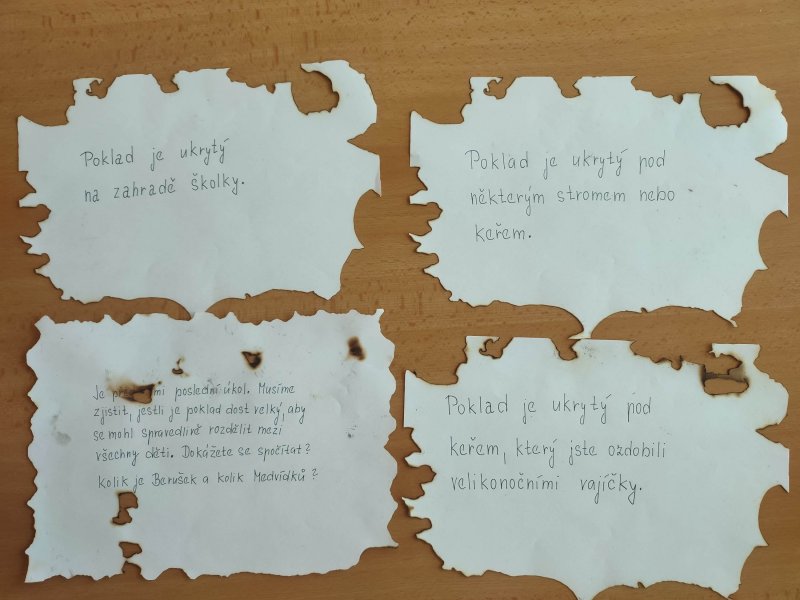 Poklad je ukrytý
na zahradě školky.
Poklad je ukrytý pod
některým stromem nebo
keřem.
Je poslední úkol. Musíme
zjistit, jestli je poklad dost velký, aby
se mohl spravedlivě rozdělit mezi
všechny děti. Dokážete se spočítat?
Kolik je Berušek a kolik Medvídků?
Poklad je ukrytý pod
keřem, který jste ozdobili
velikonočními vajíčky.